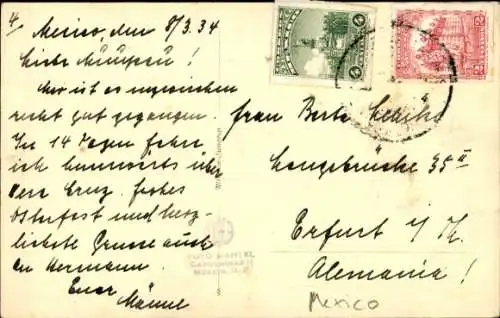 4.
Mexico, den 8/3.34
Liebe
Mir ist es inzwischen
recht gut gegangen.
In 14 Tagen fahre
ich heimwärts über
Vera Cruz. Frohes
Osterfest und herz-
lichste Grüsse auch
an Hermann.
Euer
Männe
Frau Berta
Langebrücke 35 II
Erfurt i/Th.
Alemania!
Mexico
FOTO
MEXICO, D. F.